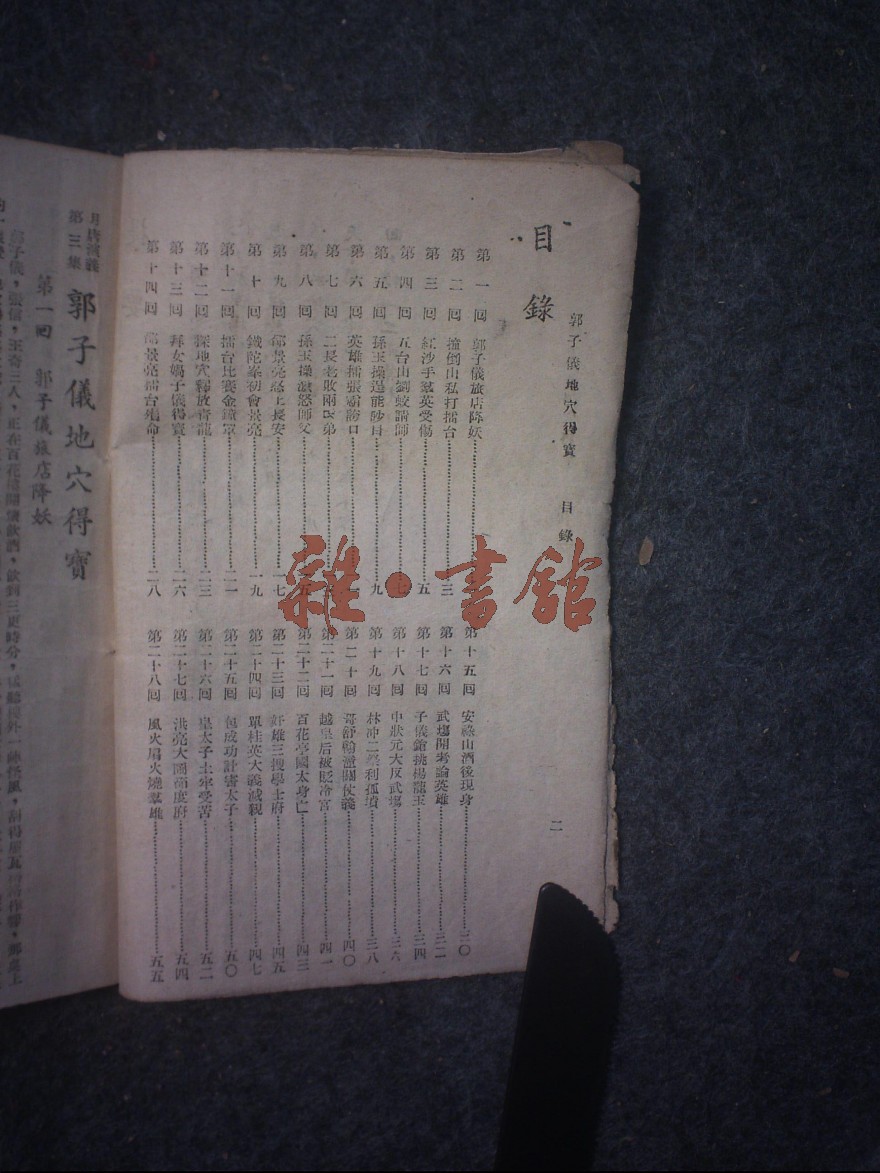 郭子儀地穴得寶 目錄
二
目錄
第一回 郭子儀旅店降妖
第二回 撞倒山私打擂台 三
第三回 紅沙手羣英受傷 五
第四回 五台山劉蛟請師 七
第五回 孫玉操逞能 九
第六回 英雄擂張霸誇口
第七回 二長老敗兩
第八回 孫玉操激怒師父
第九回 郗景亮怒上長安 一七
第十回 鐵陀峯初會景亮 一九
第十一回 擂台比賽金鐘罩 二一
第十二回 探地穴釋放青龍 二三
第十三回 拜女媧子儀得寶 二六
第十四回 郗景亮擂台殞命 二八
第十五回 安祿山酒後現身 三〇
第十六回 武塲開考論英雄 三二
第十七回 子儀鎗挑楊龍玉 三四
第十八回 中狀元大反武塲 三六
第十九回 林冲二祭利孤墳 三八
第二十回 哥舒翰潼關仗義 四〇
第二十一回 越皇后被貶冷宮 四一
第二十二回 百花亭國太身亡 四三
第二十三回 奸雄三搜學士府 四五
第二十四回 單桂英大義滅親 四七
第二十五回 包成功計害太子 五〇
第二十六回 皇太子土牢受苦 五二
第二十七回 洪亮大鬧節度府 五四
第二十八回 風火扇火燒羣雄 五五
雜·書館
月唐演義
第三集 郭子儀地穴得寶
第一回 郭子儀旅店降妖
郭子儀，張信，王奇三人，正在百花樓開懷飲酒，飲到三更時分，猛聽得外一陣怪風，刮得屋瓦